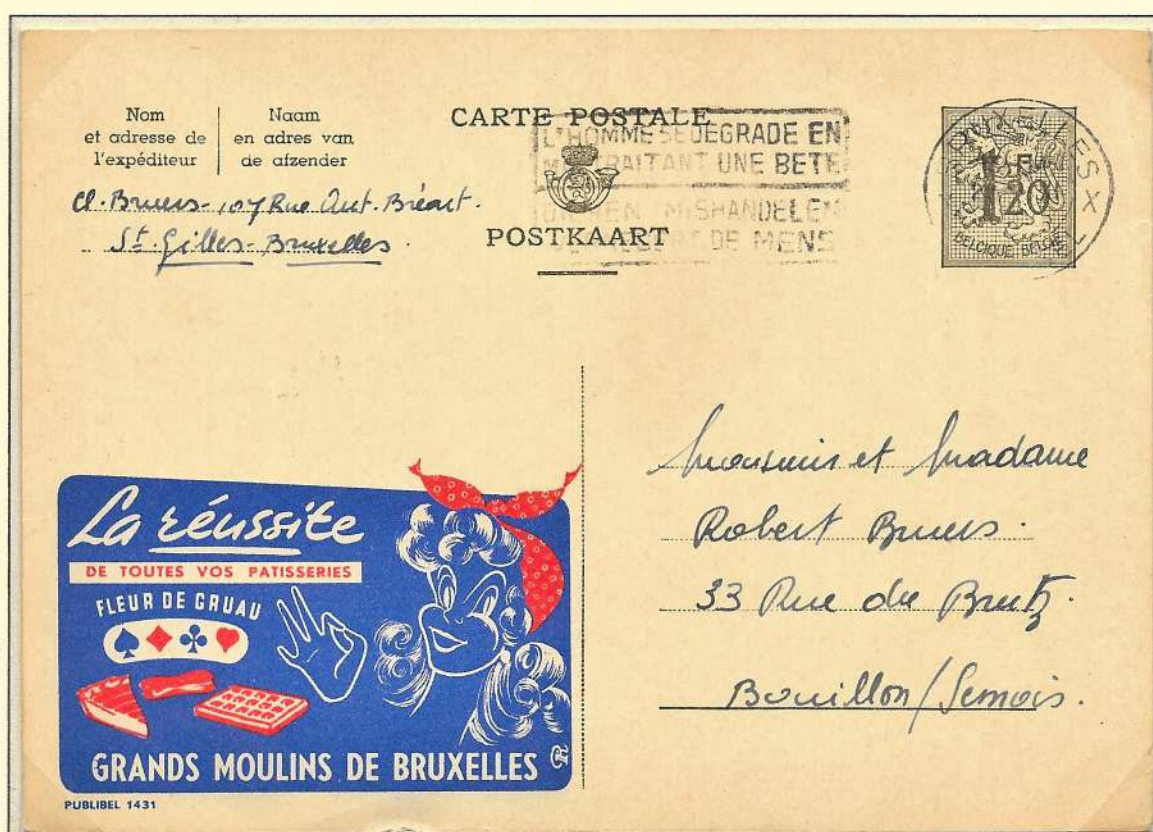 Nom
et adresse de
l'expéditeur
Naam
en adres van
de afzender
CARTE POSTALE
L'HOMME SE DEGRADE EN
MALTRAITANT UNE BETE
MISHANDELEN
DE MENS
POSTKAART
1 FR
20
BELGIQUE-BELGIE
BRUXELLES X
Cl. Bruers - 107 Rue Ant. Bréart.
St Gilles - Bruxelles.
Monsieur et Madame
Robert Bruers.
33 Rue du
Bouillon/Semois.
La réussite
DE TOUTES VOS PATISSERIES
FLEUR DE GRUAU
GRANDS MOULINS DE BRUXELLES
PUBLIBEL 1431